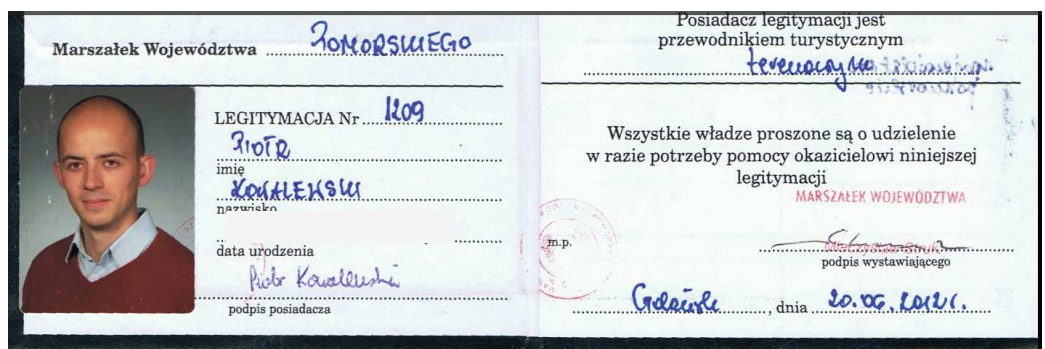 Marszałek Województwa POMORSKIEGO
LEGITYMACJA Nr 1209
PIOTR
imię
KOWALEWSKI
nazwisko
data urodzenia
Piotr Kowalewski
podpis posiadacza
Posiadacz legitymacji jest
przewodnikiem turystycznym
terenowym
Wszystkie władze proszone są o udzielenie
w razie potrzeby pomocy okazicielowi niniejszej
legitymacji
MARSZAŁEK WOJEWÓDZTWA
m.p.
Mieczysław Struk
podpis wystawiającego
Gdańsk, dnia 20.06.2012 r.